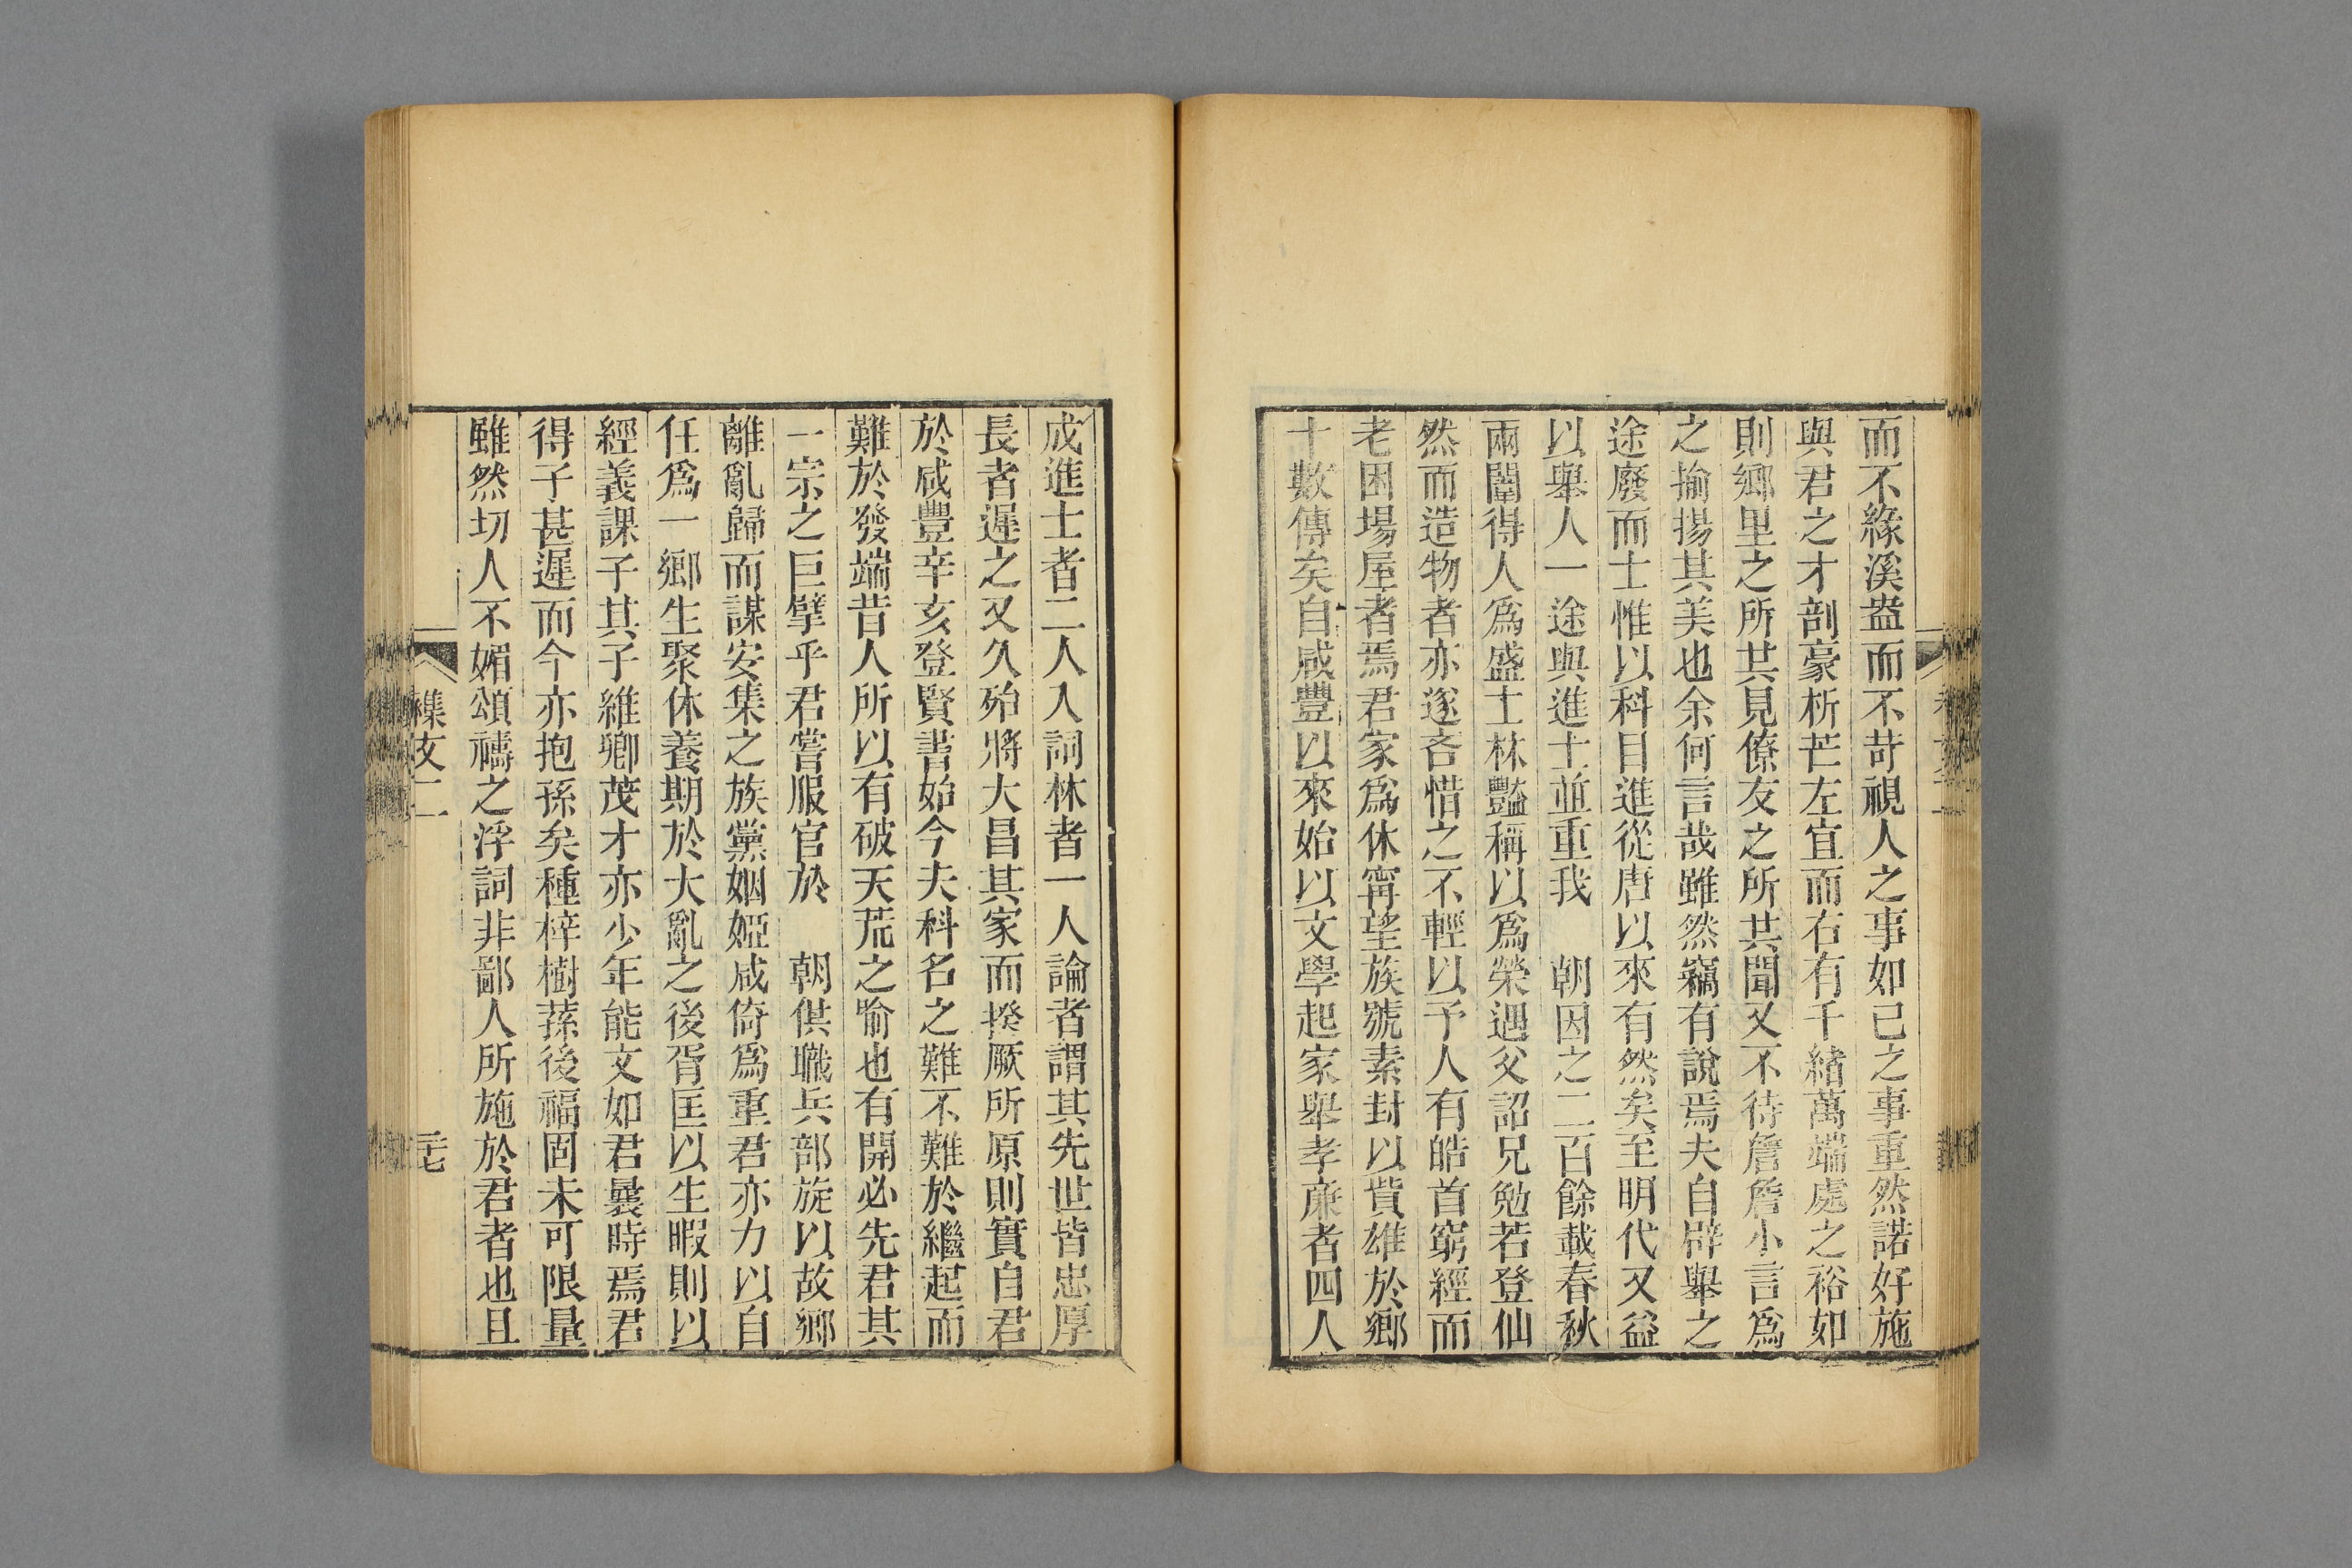 而不緣溪盎而不苛視人之事如己之事重然諾好施
與君之才剖豪析芒左宜而右有千緒萬端處之裕如
則鄉里之所共見僚友之所共聞又不待詹詹小言爲
之揄揚其美也余何言哉雖然竊有說焉夫自辟舉之
途廢而士惟以科目進從唐以來有然矣至明代又益
以舉人一途與進士並重我　朝因之二百餘載春秋
兩闈得人爲盛士林豔稱以爲榮遇父詔兄勉若登仙
然而造物者亦遂吝惜之不輕以予人有皓首窮經而
老困場屋者焉君家爲休甯望族號素封以貲雄於鄉
十數傳矣自咸豐以來始以文學起家舉孝廉者四人
成進士者二人入詞林者一人論者謂其先世皆忠厚
長者遲之又久殆將大昌其家而揆厥所原則實自君
於咸豐辛亥登賢書始今夫科名之難不難於繼起而
難於發端昔人所以有破天荒之喻也有開必先君其
一宗之巨擘乎君嘗服官於　朝供職兵部旋以故鄉
離亂歸而謀安集之族黨姻婭咸倚爲重君亦力以自
任爲一鄉生聚休養期於大亂之後胥匡以生暇則以
經義課子其子維卿茂才亦少年能文如君曩時焉君
得子甚遲而今亦抱孫矣種梓樹蓀後福固未可限量
雖然切人不媚頌禱之浮詞非鄙人所施於君者也且
襍文二
三七